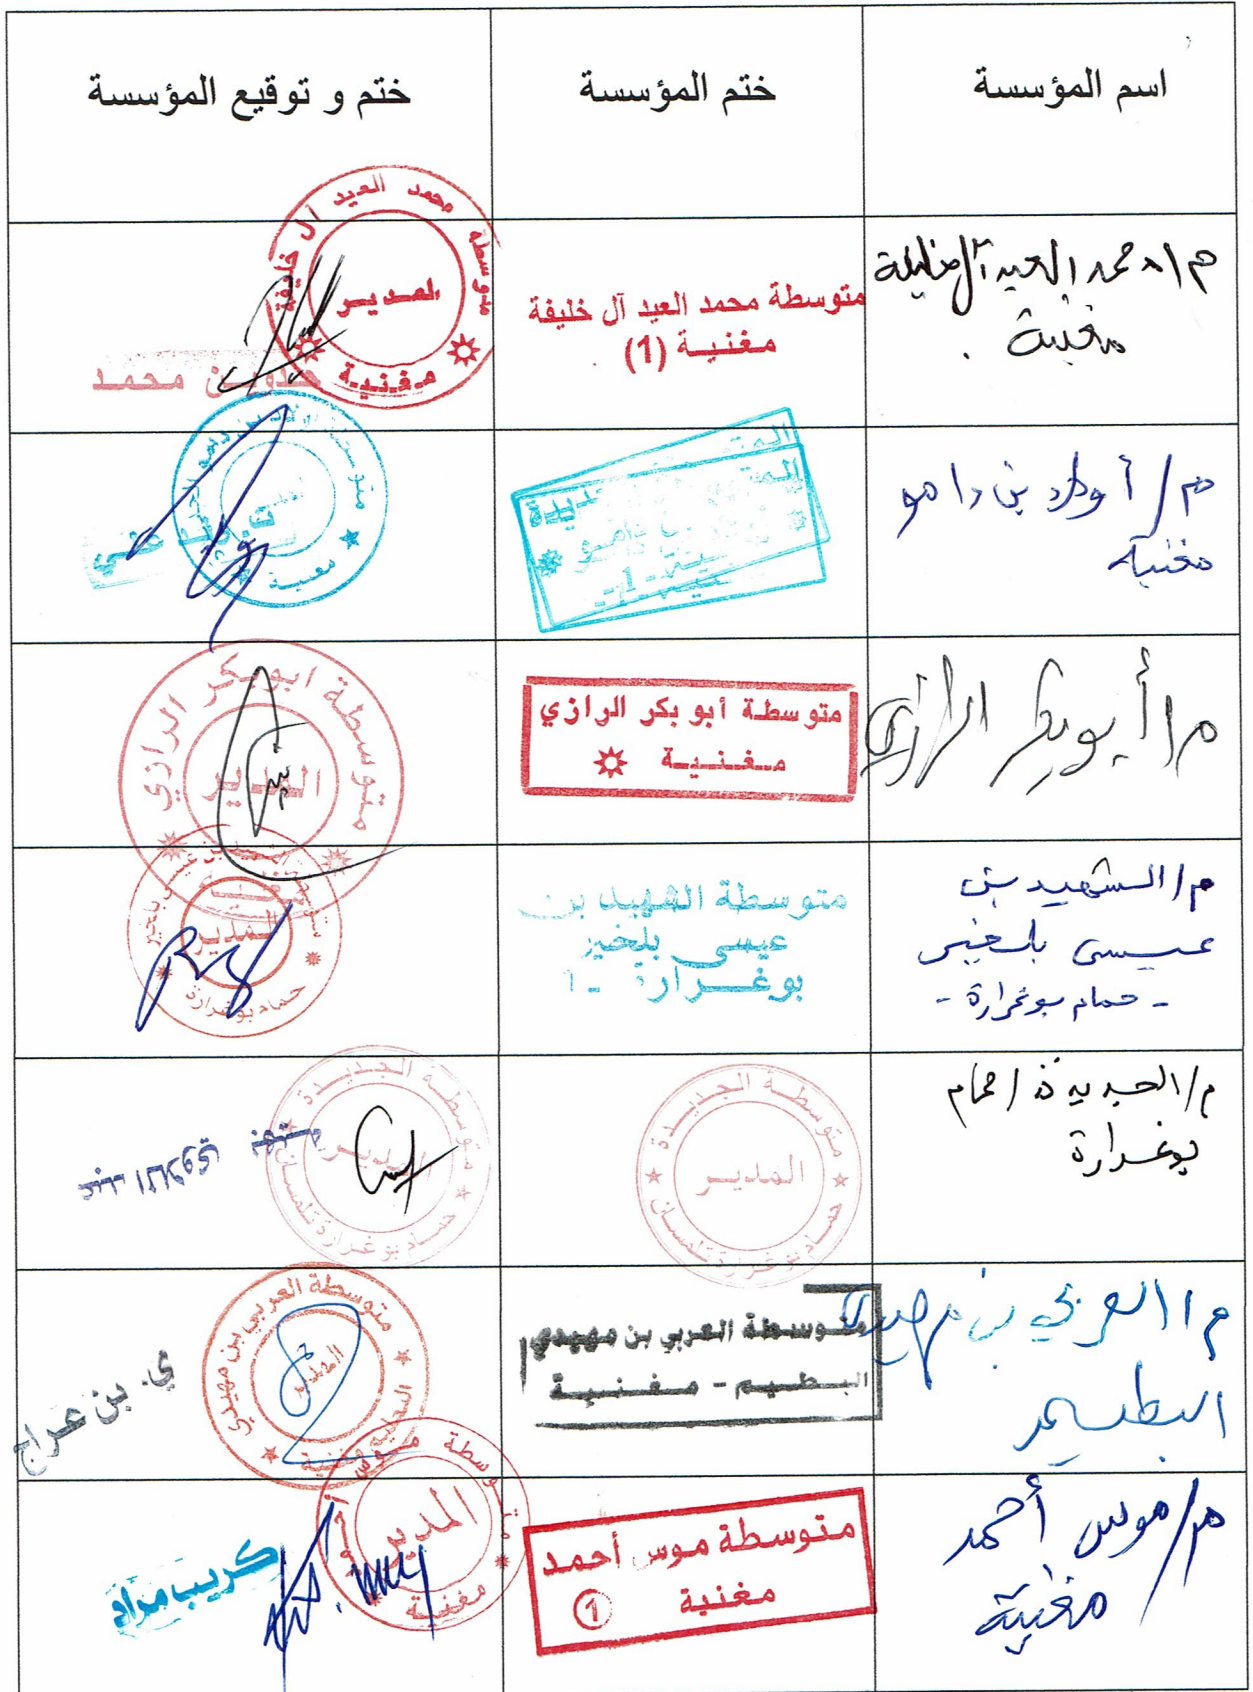 اسم المؤسسة
ختم المؤسسة
ختم و توقيع المؤسسة
م/محمد العيد آل خليفة
مغنية
متوسطة محمد العيد آل خليفة
مغنيـة (1)
متوسطة محمد العيد آل خليفة
المدير
مغنية
محمد
م/ أولاد بن دامو
مغنية
مغنية
م/أبو بكر الرازي
متوسطة أبو بكر الرازي
مـغـنـيـة
متوسطة ابوبكر الرازي
المدير
م/الشهيد بن
عيسى بلخير
- حمام بوغرارة -
متوسطة الشهيد بن
عيسى بلخير
بوغـرارة -1
المدير
حمام بوغرارة
م/الجديدة /حمام
بوغرارة
متوسطة الجديدة
المديـر
حمـام بوغـرارة تلمسـان
متوسطة الجديدة
المديـر
حمـام بوغـرارة تلمسـان
عبد اللاوي
م/العربي بن مهيدي
البطيم
متوسطة العربي بن مهيدي
البـطـيـم - مـغـنـيـة
متوسطة العربي بن مهيدي
المدير
ي. بن عراج
م/موس أحمد
مغنية
متوسطة موس أحمد
مغنية
1
متوسطة موس أحمد
المدير
مغنية
كريب مراد